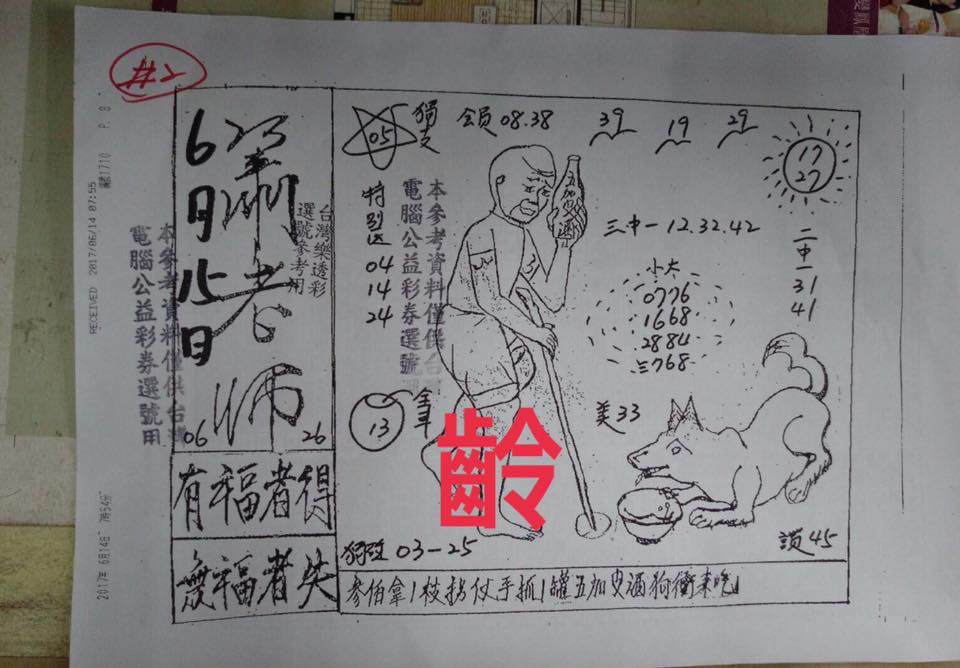 #2
RECEIVED 2017/06/14 07:55
P. 8
2017年 6月14日
本參考資料僅供台灣
電腦公益彩券選號用
6月15日
老師
台灣樂透彩
選號參考用
06
26
有福者得
無福者失
05
獨支
會員08.38
39
19
29
17
27
特別送
04
14
24
本參考資料僅供台
電腦公益彩券選號
五加皮酒
三中一12.32.42
二中一
31
41
小六
0776
1668
2884
三768
13
全車
美33
齡
03-25
讚45
參伯拿1枝拐仗手抓1罐五加皮酒狗衝來吃